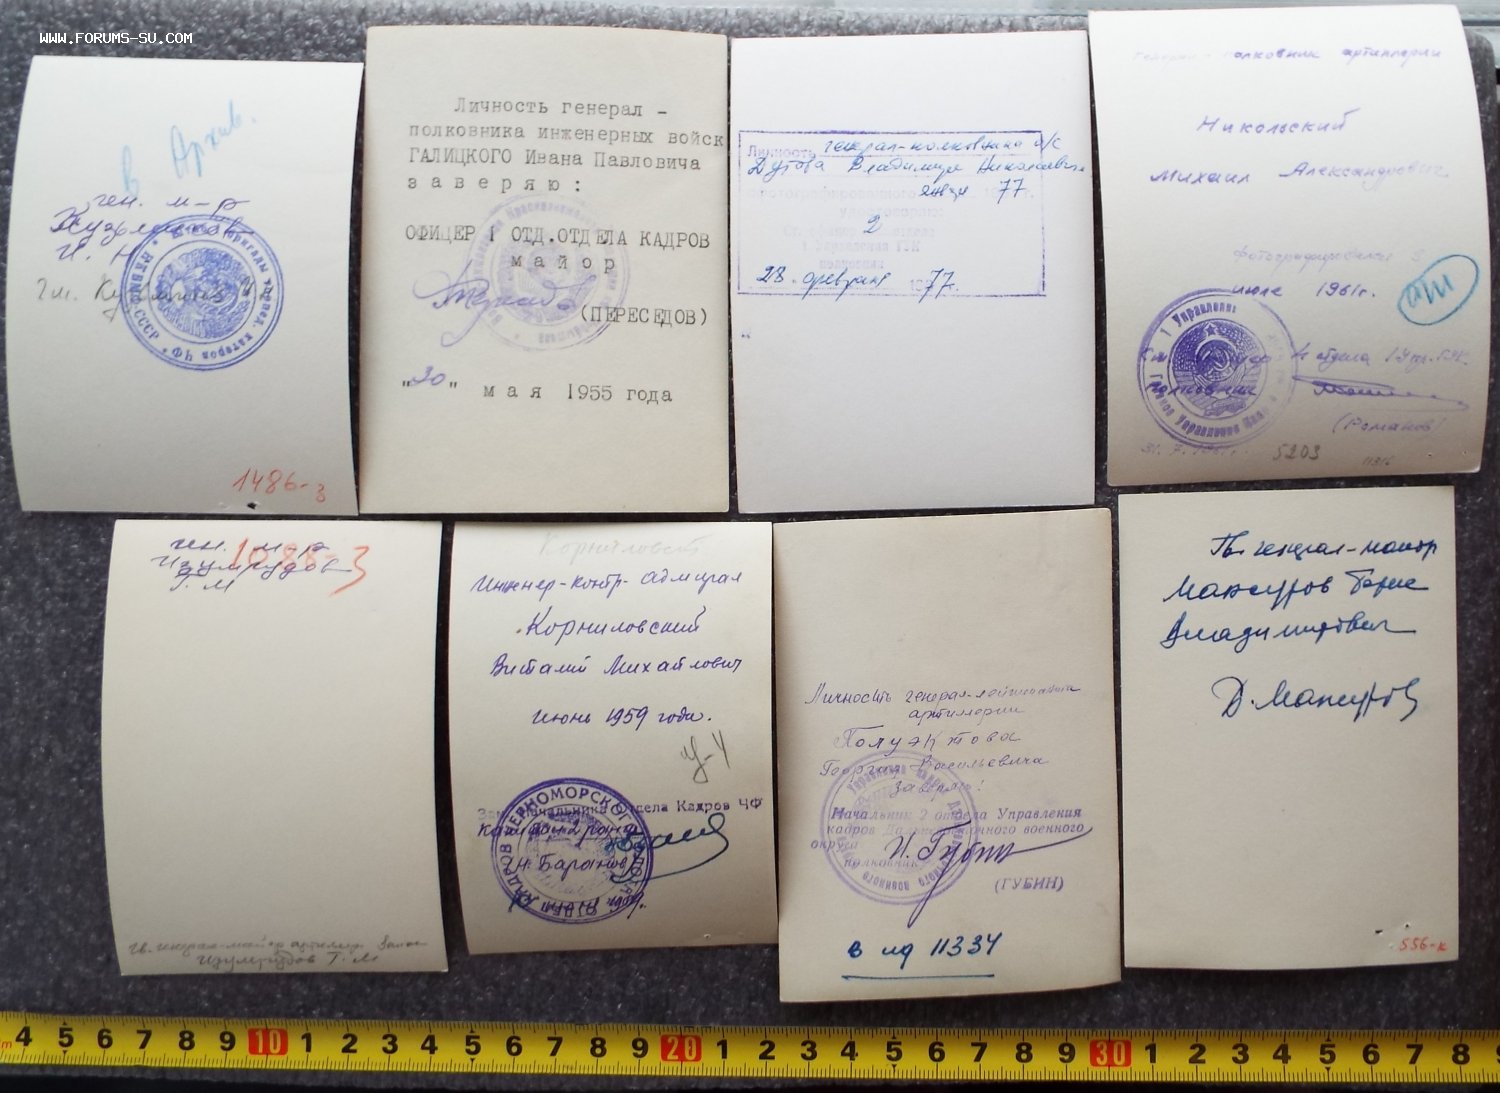 WWW.FORUMS-SU.COM
в Архив.
ген. м-р
Кузьминов
И. Н
1486-з
Личность генерал -
полковника инженерных войск
ГАЛИЦКОГО Ивана Павловича
заверяю:
ОФИЦЕР 1 ОТД.ОТДЕЛА КАДРОВ
майор
(ПЕРЕСЕДОВ)
"30" мая 1955 года
Личность генерал-полковника а/с
Дутова Владимира Николаевича
77
удостоверяю
2
1 Управления ГУК
полковник
28. февраля 1977.
полковник артиллерии
Никольский
Михаил Александрович
Фотографировался в
июле 1961г.
отдела 1 Упр. ГУК
(Романов)
5203
11316
ген. м-р
Изумрудов
Г. М
1088-З
гв. генерал-майор артиллер.
Изумрудов Г. М
Инженер-контр-адмирал
Корниловский
Виталий Михайлович
июнь 1959 года.
у-4
Зам. Начальника Отдела Кадров ЧФ
Капитан 2 ранга
Баранов
Личность генерал-лейтенанта
артиллерии
Полуэктова
Георгия Васильевича
заверяю:
Начальник 2 отдела Управления
кадров Дальневосточного военного
округа
полковник
(ГУБИН)
в лд 11334
Гв. генерал-майор
Мансуров Борис
Владимирович
556-к
4 5 6 7 8 9 10 1 2 3 4 5 6 7 8 9 20 1 2 3 4 5 6 7 8 9 30 1 2 3 4 5 6 7 8 9